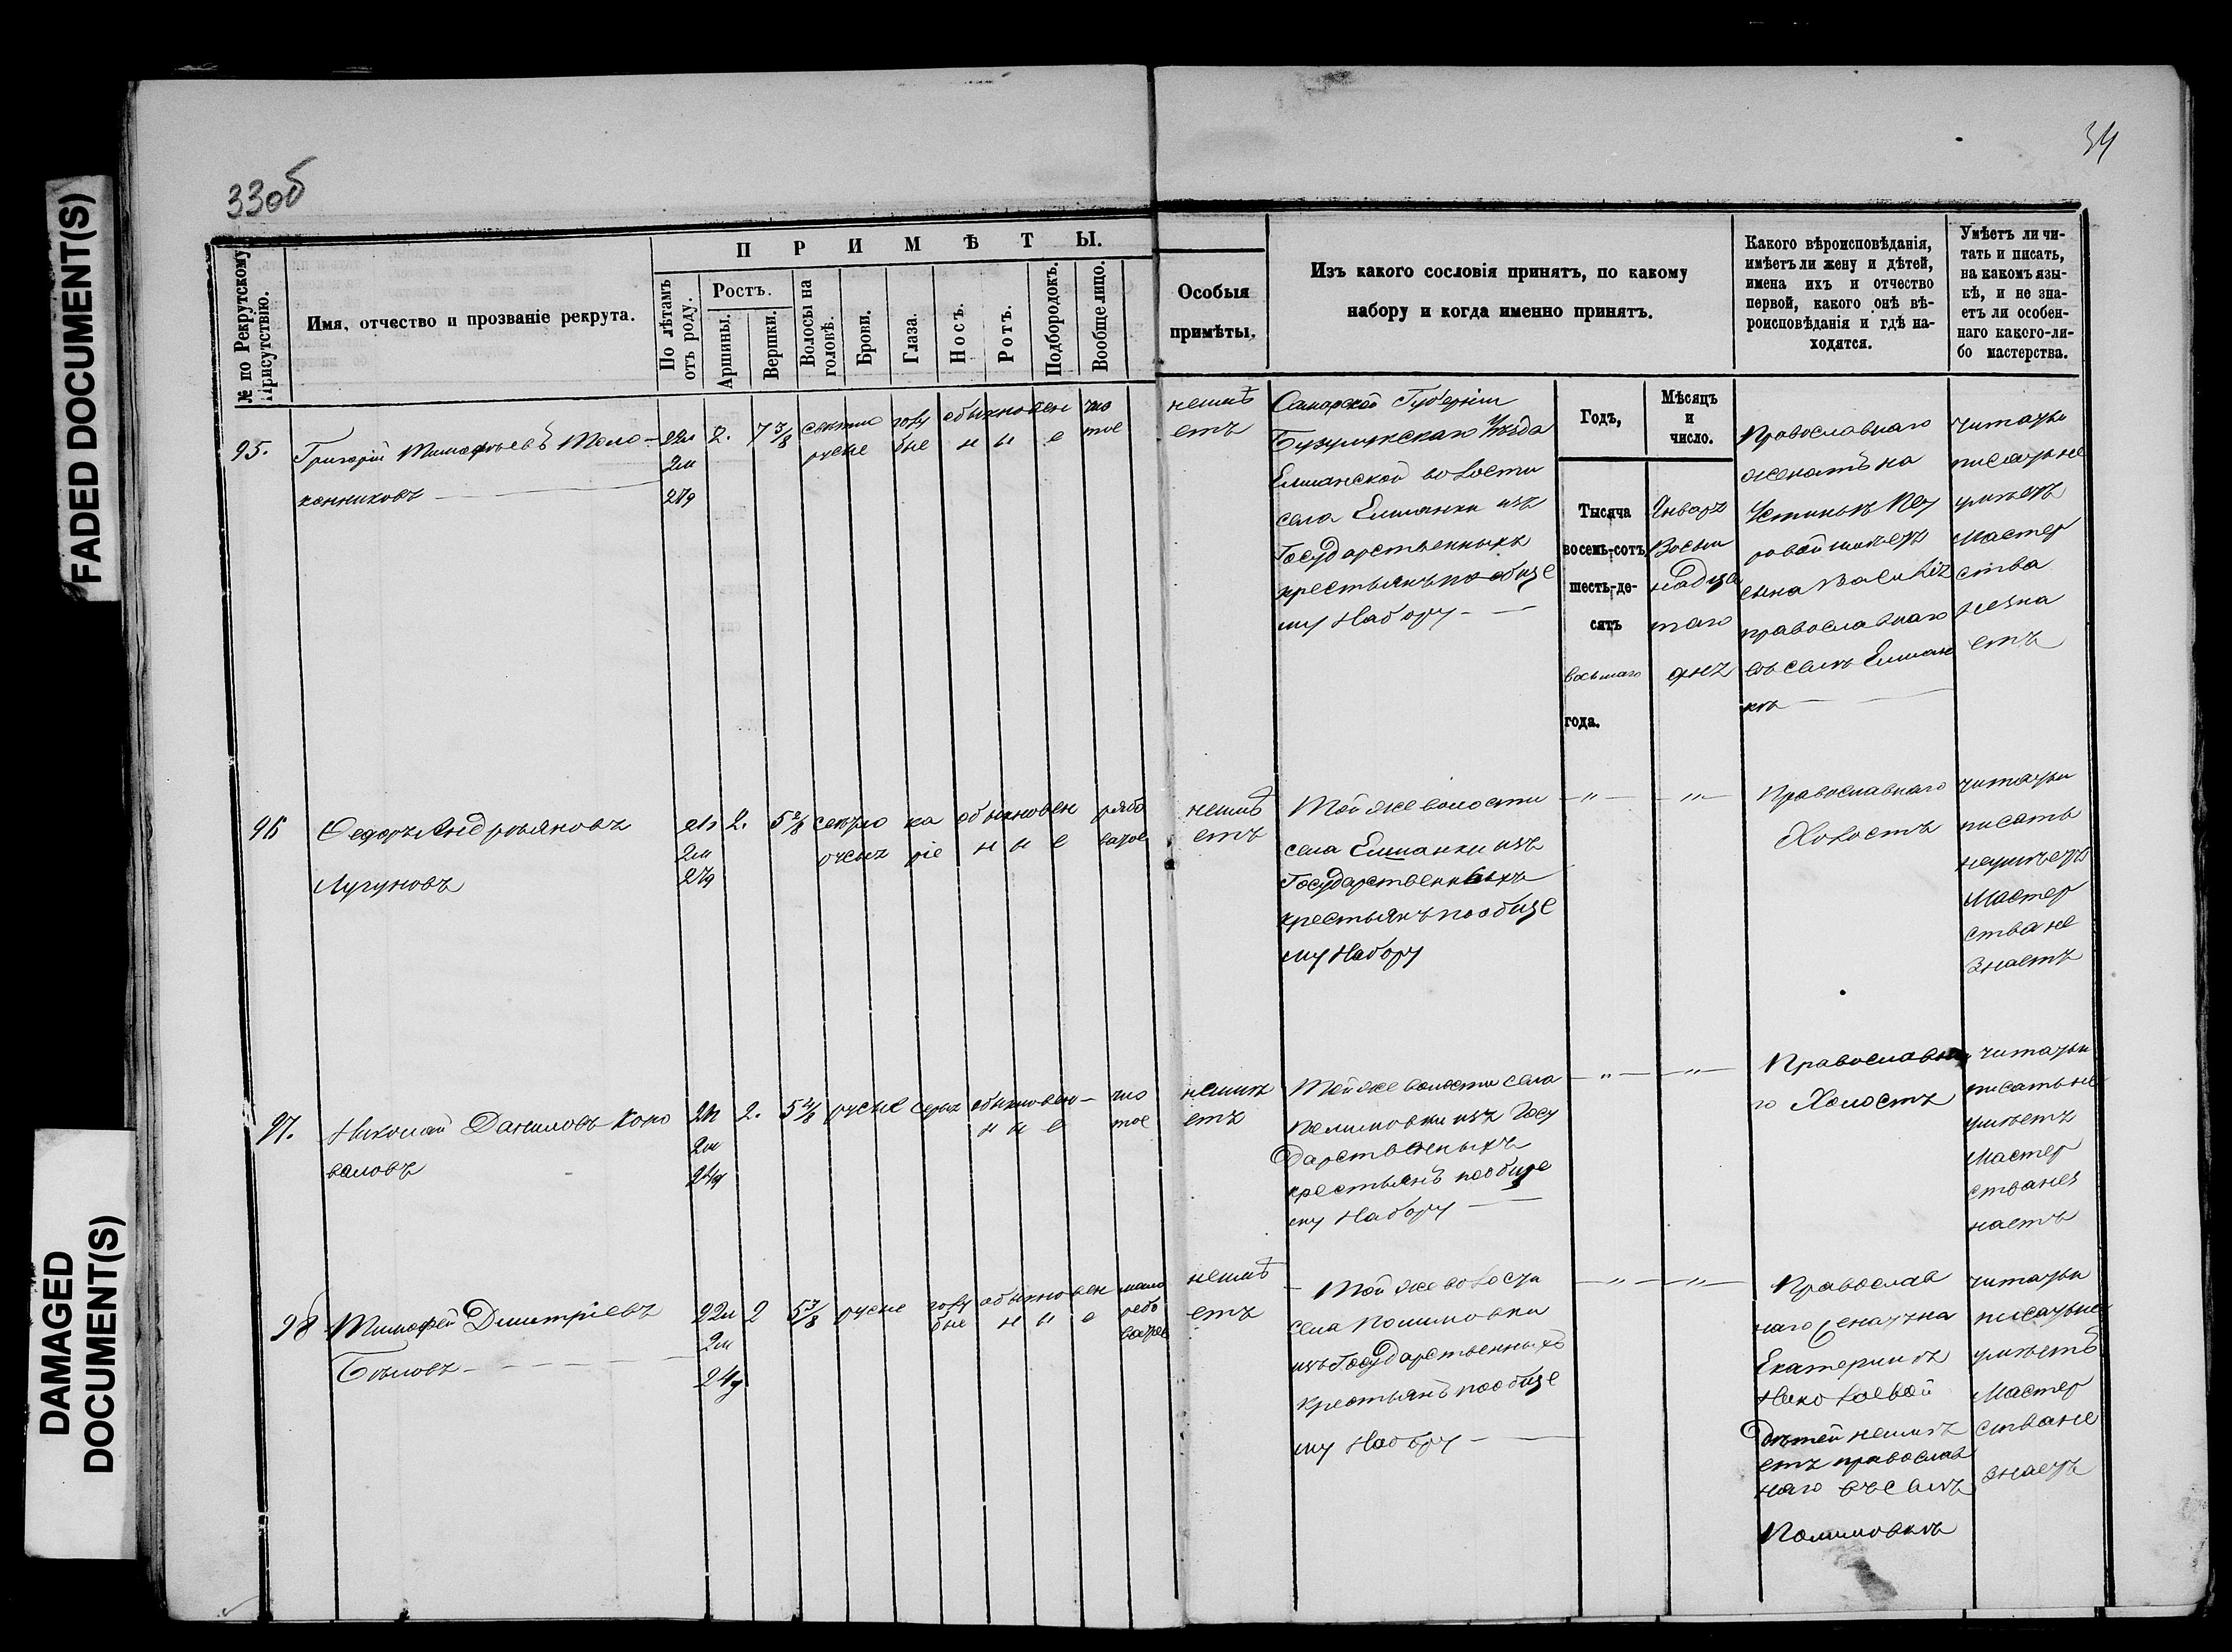 FADED DOCUMENT(S)
DAMAGED
DOCUMENT(S)
33об
34
№ по Рекрутскому
Присутствію.
Имя, отчество и прозваніе рекрута.
ПРИМѢТЫ.
По лѣтамъ
отъ роду.
Ростъ.
Аршины.
Вершки.
Волосы на
головѣ.
Брови.
Глаза.
Носъ.
Ротъ.
Подбородокъ.
Вообще лицо.
Особыя
примѣты.
Изъ какого сословія принятъ, по какому
набору и когда именно принятъ.
Какого вѣроисповѣданія,
имѣетъ ли жену и дѣтей,
имена ихъ и отчество
первой, какого онѣ вѣ-
роисповѣданія и гдѣ на-
ходятся.
Умѣетъ ли чи-
тать и писать,
на какомъ язы-
кѣ, и не зна-
етъ ли особен-
наго какого-ли-
бо мастерства.
95.
Григорій Тимофѣевъ
22л
2м
27д
2.
7 3/8
свѣтло
русые
голу
бые
обыкновен
ные
чис
тое
неимѣ
етъ
Самарской Губерніи
Бузулукскаго Уѣзда
Елшанской волости
села Елшанки изъ
Государственныхъ
крестьянъ по обще
му Набору
Годъ,
Мѣсяцъ
и
число.
Тысяча
восемь-сотъ
шесть-де-
сятъ
восьмаго
года.
Января
Восем
надца
таго
дня
Православнаго
женатъ на
Устиньѣ Пет
ровой имѣетъ
сына
православнаго
въ селѣ Елшан
кѣ
читать и
писать не
умѣетъ
Мастер
ства
незна
етъ
96
Федоръ Андрояновъ
Лугуновъ
2м
27д
2.
5 2/8
свѣтло
ка
ріе
обыкновен
ные
рябо
ватое
неимѣ
етъ
Той же волости
села Елшанки изъ
Государственныхъ
крестьянъ по обще
му Набору
Православнаго
Холостъ
читать и
писать
неумѣетъ
Мастер
ства не
знаетъ
97.
Николай Даниловъ Коно
валовъ
2м
24д
2.
русые
обыкновен
ные
чис
тое
неимѣ
етъ
Той же волости села
изъ Госу
дарственныхъ
крестьянъ по обще
му Набору
Православна
го Холостъ
читать и
писать не
умѣетъ
Мастер
ства нез
наетъ
98
Тимофей Димитріевъ
Бѣловъ
22л
2м
24д
2
5 3/8
русые
голу
бые
обыкновен
ные
мало
рябо
ватое
неимѣ
етъ
Той же волости
села
изъ Государственныхъ
крестьянъ по обще
му Набору
Православ
наго женатъ на
Екатеринѣ
Николаевой
Дѣтей неимѣ
етъ православ
наго въ селѣ
читать и
писать не
умѣетъ
Мастер
ства не
знаетъ